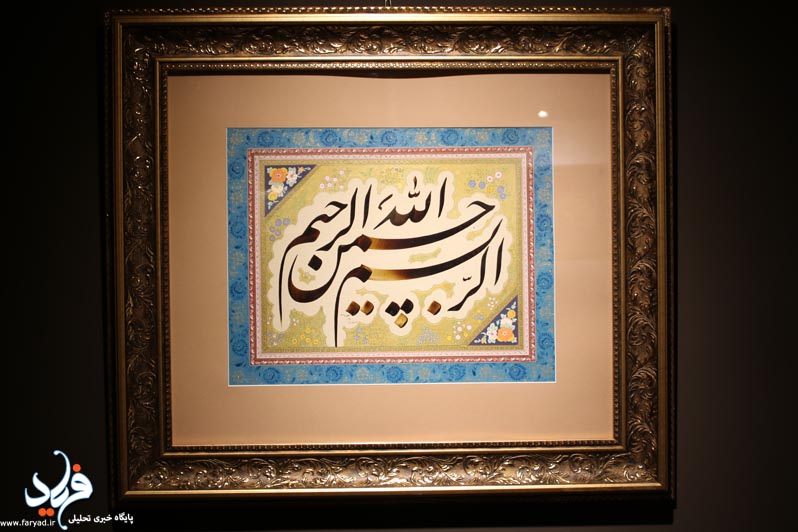 بسم الله الرحمن الرحیم
فریاد
پایگاه خبری تحلیلی
www.faryad.ir